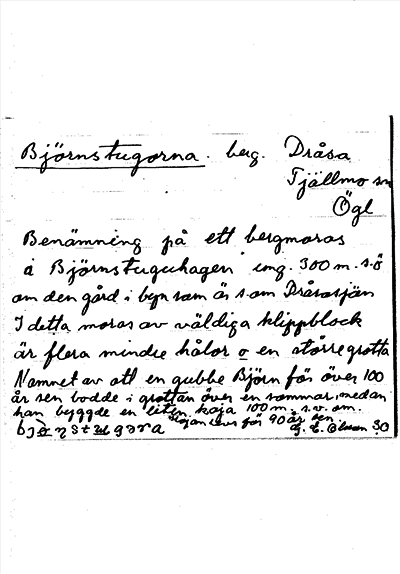 Björnstugorna. berg. Dråsa
Tjällmo sn
Ögl
Benämning på ett bergmoras
å Björnstuguhagen omg. 300 m. s.ö
om den gård i byn som äs som Dråsasjön
I detta moras av väldiga klippblock
är flera mindre hålor o en större grotta
Namnet av att en gubbe Björn för över 100
år sen bodde i grottan över en sommar, medan
han byggde en liten koja 100 m. s.v. om.
Kojan revs för 90 år sen
G. E. Olsson 30